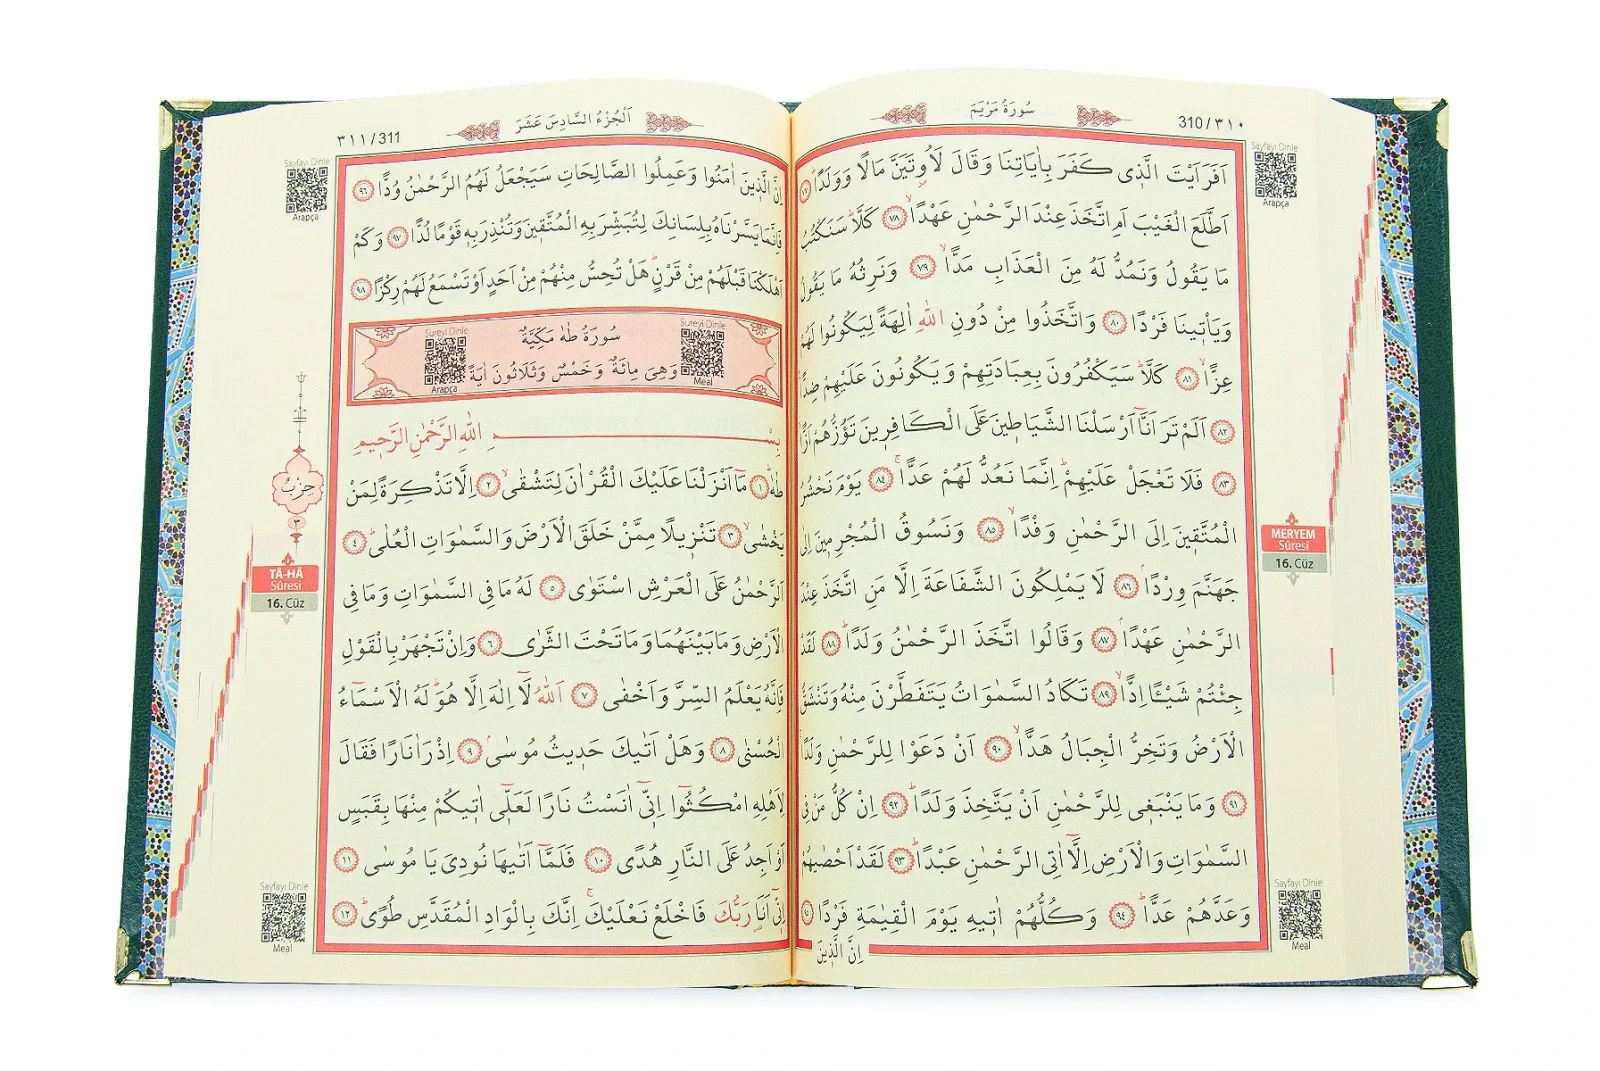 سُورَةُ مَرْيَمَ
310/٣١٠
Sayfayı Dinle
Arapça
اَفَرَاَيْتَ الَّذ۪ي كَفَرَ بِاٰيَاتِنَا وَقَالَ لَاُو۫تَيَنَّ مَالًا وَوَلَدًاۜ ﴿٧٧﴾
اَطَّلَعَ الْغَيْبَ اَمِ اتَّخَذَ عِنْدَ الرَّحْمٰنِ عَهْدًاۙ ﴿٧٨﴾ كَلَّاۜ سَنَكْتُبُ
مَا يَقُولُ وَنَمُدُّ لَهُ مِنَ الْعَذَابِ مَدًّاۙ ﴿٧٩﴾ وَنَرِثُهُ مَا يَقُولُ
وَيَأْت۪ينَا فَرْدًا ﴿٨٠﴾ وَاتَّخَذُوا مِنْ دُونِ اللّٰهِ اٰلِهَةً لِيَكُونُوا لَهُمْ
عِزًّاۙ ﴿٨١﴾ كَلَّاۜ سَيَكْفُرُونَ بِعِبَادَتِهِمْ وَيَكُونُونَ عَلَيْهِمْ ضِدًّا
﴿٨٢﴾ اَلَمْ تَرَ اَنَّٓا اَرْسَلْنَا الشَّيَاط۪ينَ عَلَى الْكَافِر۪ينَ تَؤُزُّهُمْ اَزًّا
﴿٨٣﴾ فَلَا تَعْجَلْ عَلَيْهِمْۜ اِنَّمَا نَعُدُّ لَهُمْ عَدًّاۚ ﴿٨٤﴾ يَوْمَ نَحْشُرُ
الْمُتَّق۪ينَ اِلَى الرَّحْمٰنِ وَفْدًاۙ ﴿٨٥﴾ وَنَسُوقُ الْمُجْرِم۪ينَ اِلٰى
جَهَنَّمَ وِرْدًاۢ ﴿٨٦﴾ لَا يَمْلِكُونَ الشَّفَاعَةَ اِلَّا مَنِ اتَّخَذَ عِنْدَ
الرَّحْمٰنِ عَهْدًاۢ ﴿٨٧﴾ وَقَالُوا اتَّخَذَ الرَّحْمٰنُ وَلَدًاۜ ﴿٨٨﴾ لَقَدْ
جِئْتُمْ شَيْـًٔا اِدًّاۙ ﴿٨٩﴾ تَكَادُ السَّمٰوَاتُ يَتَفَطَّرْنَ مِنْهُ وَتَنْشَقُّ
الْاَرْضُ وَتَخِرُّ الْجِبَالُ هَدًّاۙ ﴿٩٠﴾ اَنْ دَعَوْا لِلرَّحْمٰنِ وَلَدًا
﴿٩١﴾ وَمَا يَنْبَغ۪ي لِلرَّحْمٰنِ اَنْ يَتَّخِذَ وَلَدًاۜ ﴿٩٢﴾ اِنْ كُلُّ مَنْ فِي
السَّمٰوَاتِ وَالْاَرْضِ اِلَّٓا اٰتِي الرَّحْمٰنِ عَبْدًاۜ ﴿٩٣﴾ لَقَدْ اَحْصٰيهُمْ
وَعَدَّهُمْ عَدًّاۜ ﴿٩٤﴾ وَكُلُّهُمْ اٰت۪يهِ يَوْمَ الْقِيٰمَةِ فَرْدًا
اِنَّ الَّذ۪ينَ
MERYEM
Sûresi
16. Cüz
Sayfayı Dinle
Meal
اَلْجُزْءُ السَّادِسَ عَشَرَ
٣١١/311
Sayfayı Dinle
Arapça
اِنَّ الَّذ۪ينَ اٰمَنُوا وَعَمِلُوا الصَّالِحَاتِ سَيَجْعَلُ لَهُمُ الرَّحْمٰنُ وُدًّا ﴿٩٦﴾
فَاِنَّمَا يَسَّرْنَاهُ بِلِسَانِكَ لِتُبَشِّرَ بِهِ الْمُتَّق۪ينَ وَتُنْذِرَ بِه۪ قَوْمًا لُدًّا ﴿٩٧﴾ وَكَمْ
اَهْلَكْنَا قَبْلَهُمْ مِنْ قَرْنٍۜ هَلْ تُحِسُّ مِنْهُمْ مِنْ اَحَدٍ اَوْ تَسْمَعُ لَهُمْ رِكْزًا ﴿٩٨﴾
سُورَةُ طٰهٰ مَكِّيَّةٌ
وَهِيَ مِائَةٌ وَخَمْسٌ وَثَلَاثُونَ اٰيَةً
Sureyi Dinle
Meal
Sureyi Dinle
Arapça
بِسْمِ اللّٰهِ الرَّحْمٰنِ الرَّح۪يمِ
طٰهٰۜ ﴿١﴾ مَٓا اَنْزَلْنَا عَلَيْكَ الْقُرْاٰنَ لِتَشْقٰىۙ ﴿٢﴾ اِلَّا تَذْكِرَةً لِمَنْ
يَخْشٰىۙ ﴿٣﴾ تَنْز۪يلًا مِمَّنْ خَلَقَ الْاَرْضَ وَالسَّمٰوَاتِ الْعُلٰىۜ ﴿٤﴾
اَلرَّحْمٰنُ عَلَى الْعَرْشِ اسْتَوٰى ﴿٥﴾ لَهُ مَا فِي السَّمٰوَاتِ وَمَا فِي
الْاَرْضِ وَمَا بَيْنَهُمَا وَمَا تَحْتَ الثَّرٰى ﴿٦﴾ وَاِنْ تَجْهَرْ بِالْقَوْلِ
فَاِنَّهُ يَعْلَمُ السِّرَّ وَاَخْفٰى ﴿٧﴾ اَللّٰهُ لَٓا اِلٰهَ اِلَّا هُوَۜ لَهُ الْاَسْمَٓاءُ
الْحُسْنٰى ﴿٨﴾ وَهَلْ اَتٰيكَ حَد۪يثُ مُوسٰىۢ ﴿٩﴾ اِذْ رَاٰ نَارًا فَقَالَ
لِاَهْلِهِ امْكُثُٓوا اِنّ۪ٓي اٰنَسْتُ نَارًا لَعَلّ۪ٓي اٰت۪يكُمْ مِنْهَا بِقَبَسٍ
اَوْ اَجِدُ عَلَى النَّارِ هُدًى ﴿١٠﴾ فَلَمَّٓا اَتٰيهَا نُودِيَ يَا مُوسٰى ﴿١١﴾
اِنّ۪ٓي اَنَا۬ رَبُّكَ فَاخْلَعْ نَعْلَيْكَۚ اِنَّكَ بِالْوَادِ الْمُقَدَّسِ طُوًىۜ ﴿١٢﴾
حزب
٣
TÂ-HÂ
Sûresi
16. Cüz
Sayfayı Dinle
Meal